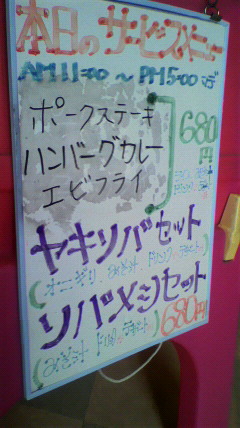 本日のサービスメニュー
AM11:00 ～ PM5:00 まで
ポークステーキ
ハンバーグカレー
エビフライ
680円
ヤキソバセット
(オニギリ、みそ汁、ドリンク、デザート)
ソバメシセット
680円
(みそ汁、ドリンク、デザート)